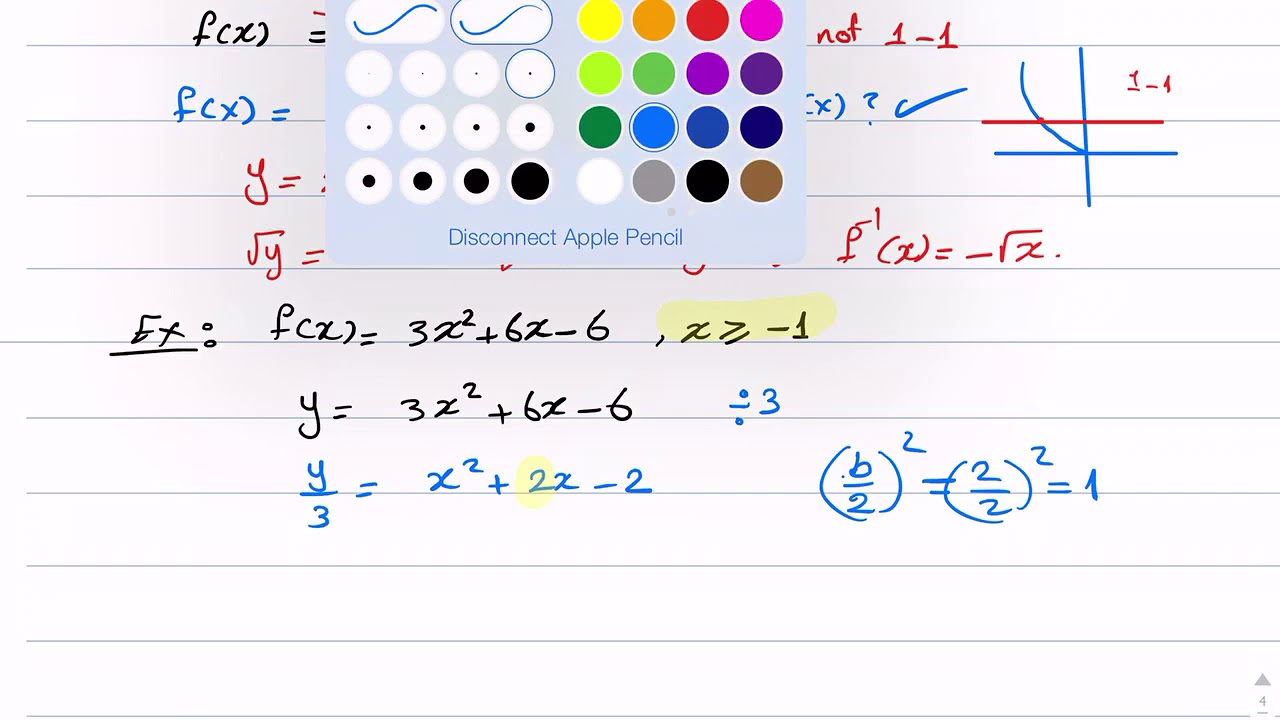 f(x) =
not 1-1
f(x) =
(x) ? ✓
1-1
y =
√y =
f⁻¹(x) = -√x.
Disconnect Apple Pencil
Ex: f(x) = 3x²+6x-6 , x ≥ -1
y = 3x²+6x-6 ÷3
y/3 = x²+2x-2 (b/2)² = (2/2)² = 1
4